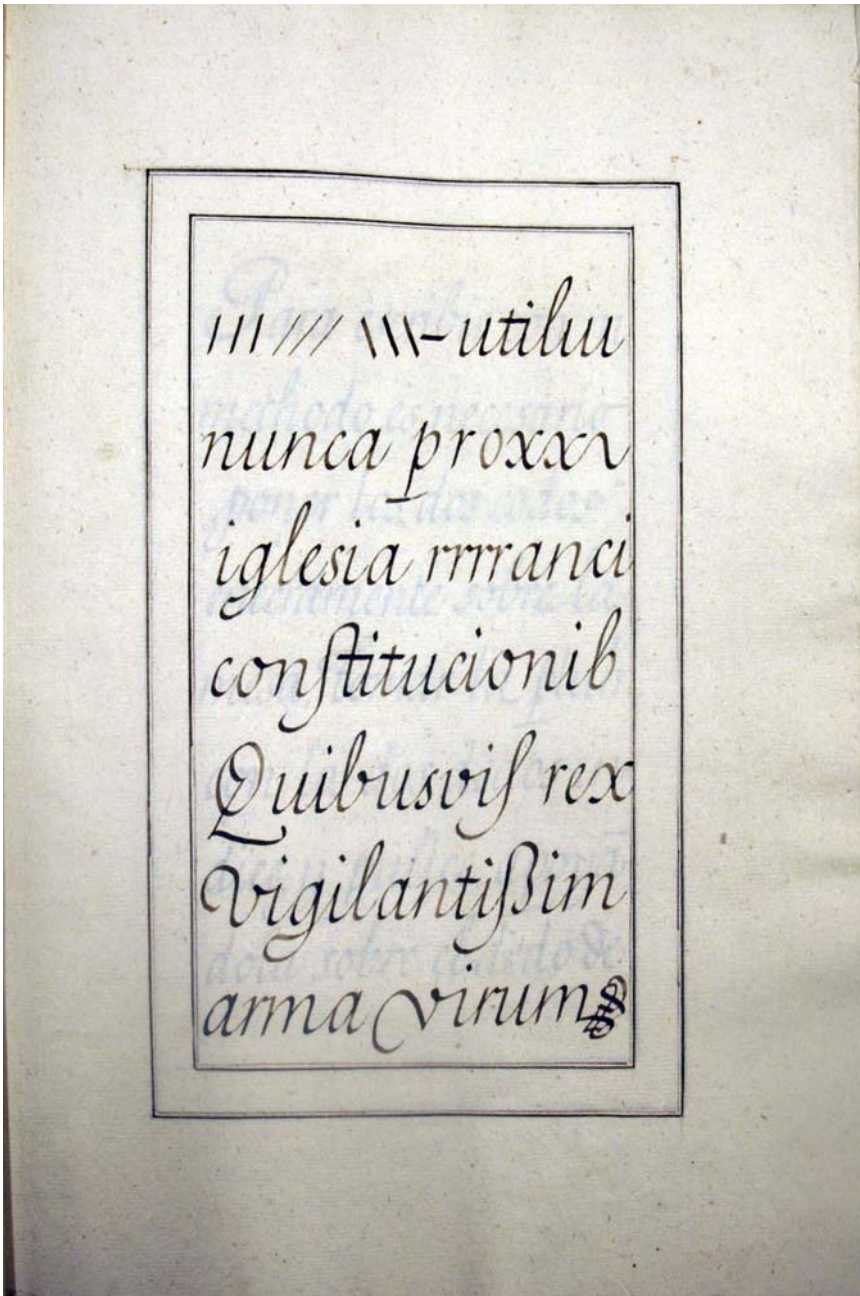 ııı /// \\\ – utiluı
nunca proxxı
iglesia rrrranci
conſtitucionib
Quibusviſ rex
vigilantißim
arma virum